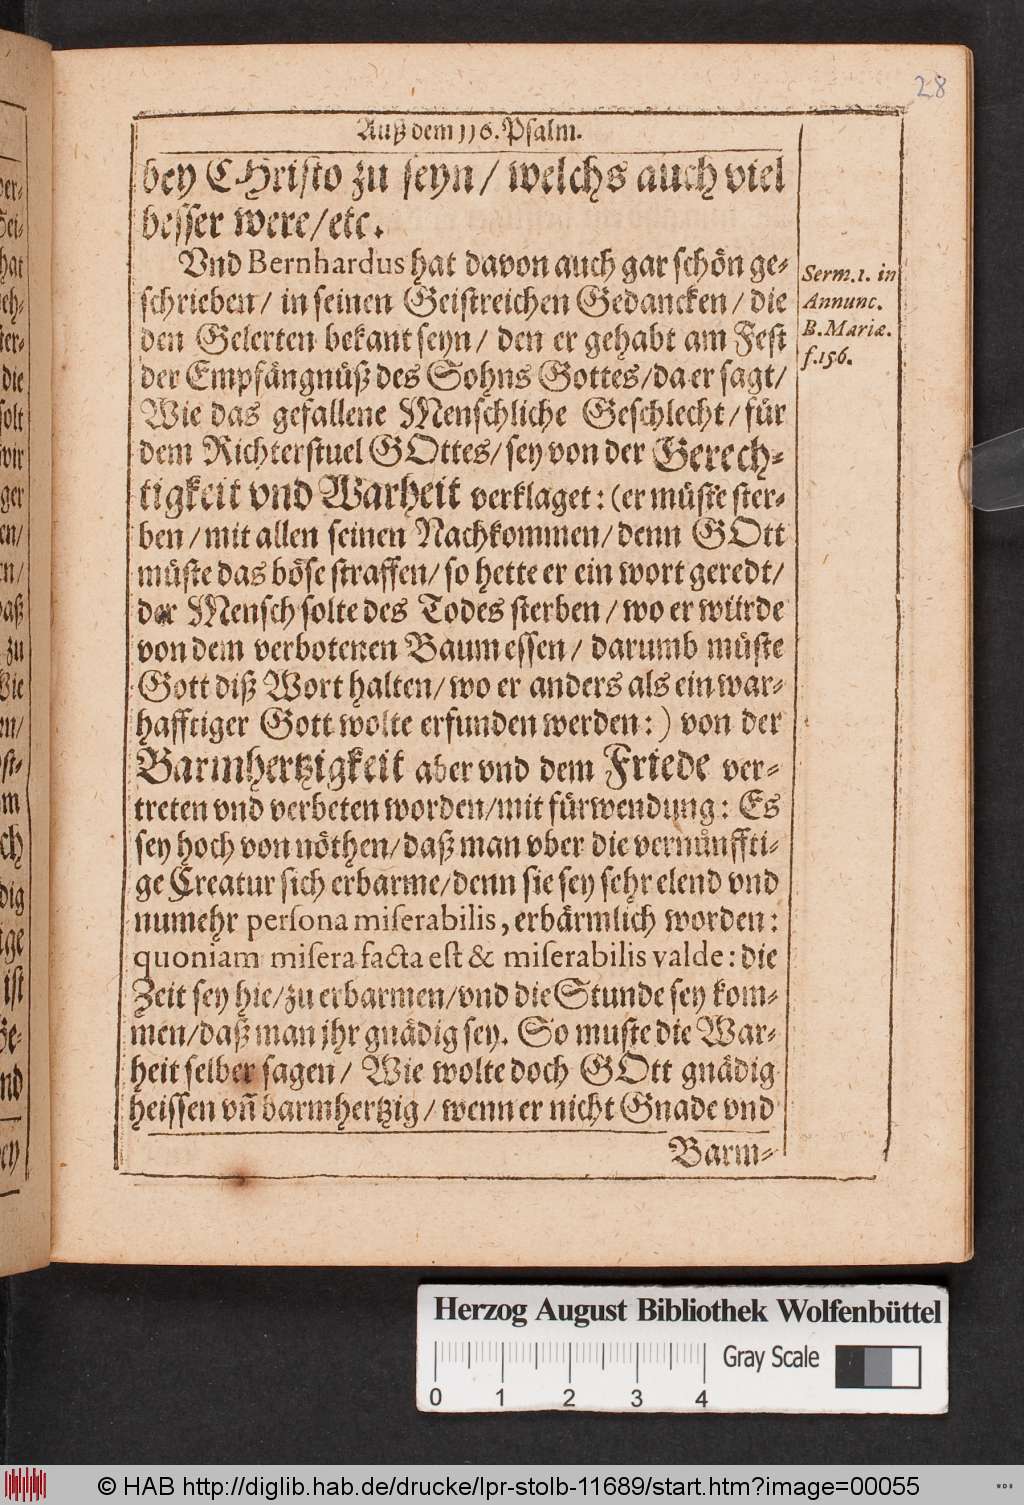 28
Auß dem 116. Psalm.
bey CHristo zu seyn / welchs auch viel
besser were / etc.
Vnd Bernhardus hat davon auch gar schön ge-
schrieben / in seinen Geistreichen Gedancken / die
den Gelerten bekant seyn / den er gehabt am Fest
der Empfängnüß des Sohns Gottes / da er sagt /
Wie das gefallene Menschliche Geschlecht / für
dem Richterstuel GOttes / sey von der Gerech-
tigkeit vnd Warheit verklaget : (er müste ster-
ben / mit allen seinen Nachkommen / denn GOtt
müste das böse straffen / so hette er ein wort geredt /
der Mensch solte des Todes sterben / wo er würde
von dem verbotenen Baum essen / darumb müste
Gott diß Wort halten / wo er anders als ein war-
hafftiger Gott wolte erfunden werden : ) von der
Barmhertzigkeit aber vnd dem Friede ver-
treten vnd verbeten worden / mit fürwendung : Es
sey hoch von nöthen / daß man vber die vernůnffti-
ge Creatur sich erbarme / denn sie sey sehr elend vnd
numehr persona miserabilis, erbärmlich worden :
quoniam misera facta est & miserabilis valde : die
Zeit sey hie / zu erbarmen / vnd die Stunde sey kom-
men / daß man jhr gnädig sey. So muste die War-
heit selber sagen / Wie wolte doch GOtt gnädig
heissen vñ barmhertzig / wenn er nicht Gnade vnd
Barm-
Serm. 1. in
Annunc.
B. Mariæ.
f. 156.
Herzog August Bibliothek Wolfenbüttel
Gray Scale
0 1 2 3 4
© HAB http://diglib.hab.de/drucke/lpr-stolb-11689/start.htm?image=00055